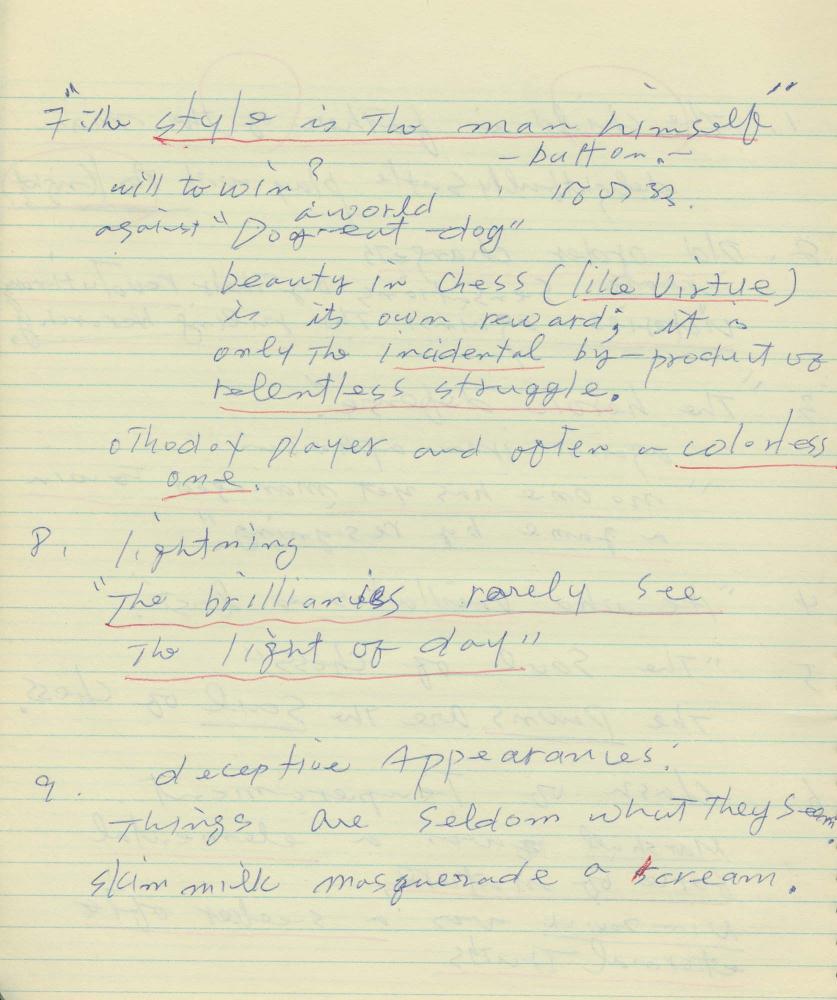 7 "The style is The man himself"
- button. -
will to win?
a world
against "Dog-eat-dog"
beauty in Chess (like Virtue)
is its own reward; it is
only The incidental by-product of
relentless struggle.
oThodox player and often a colorless
one.
8. lightning
"The brilliancies rarely see
The light of day"
9. deceptive Appearances:
Things are Seldom what They seem.
skim milk masquerade a scream.